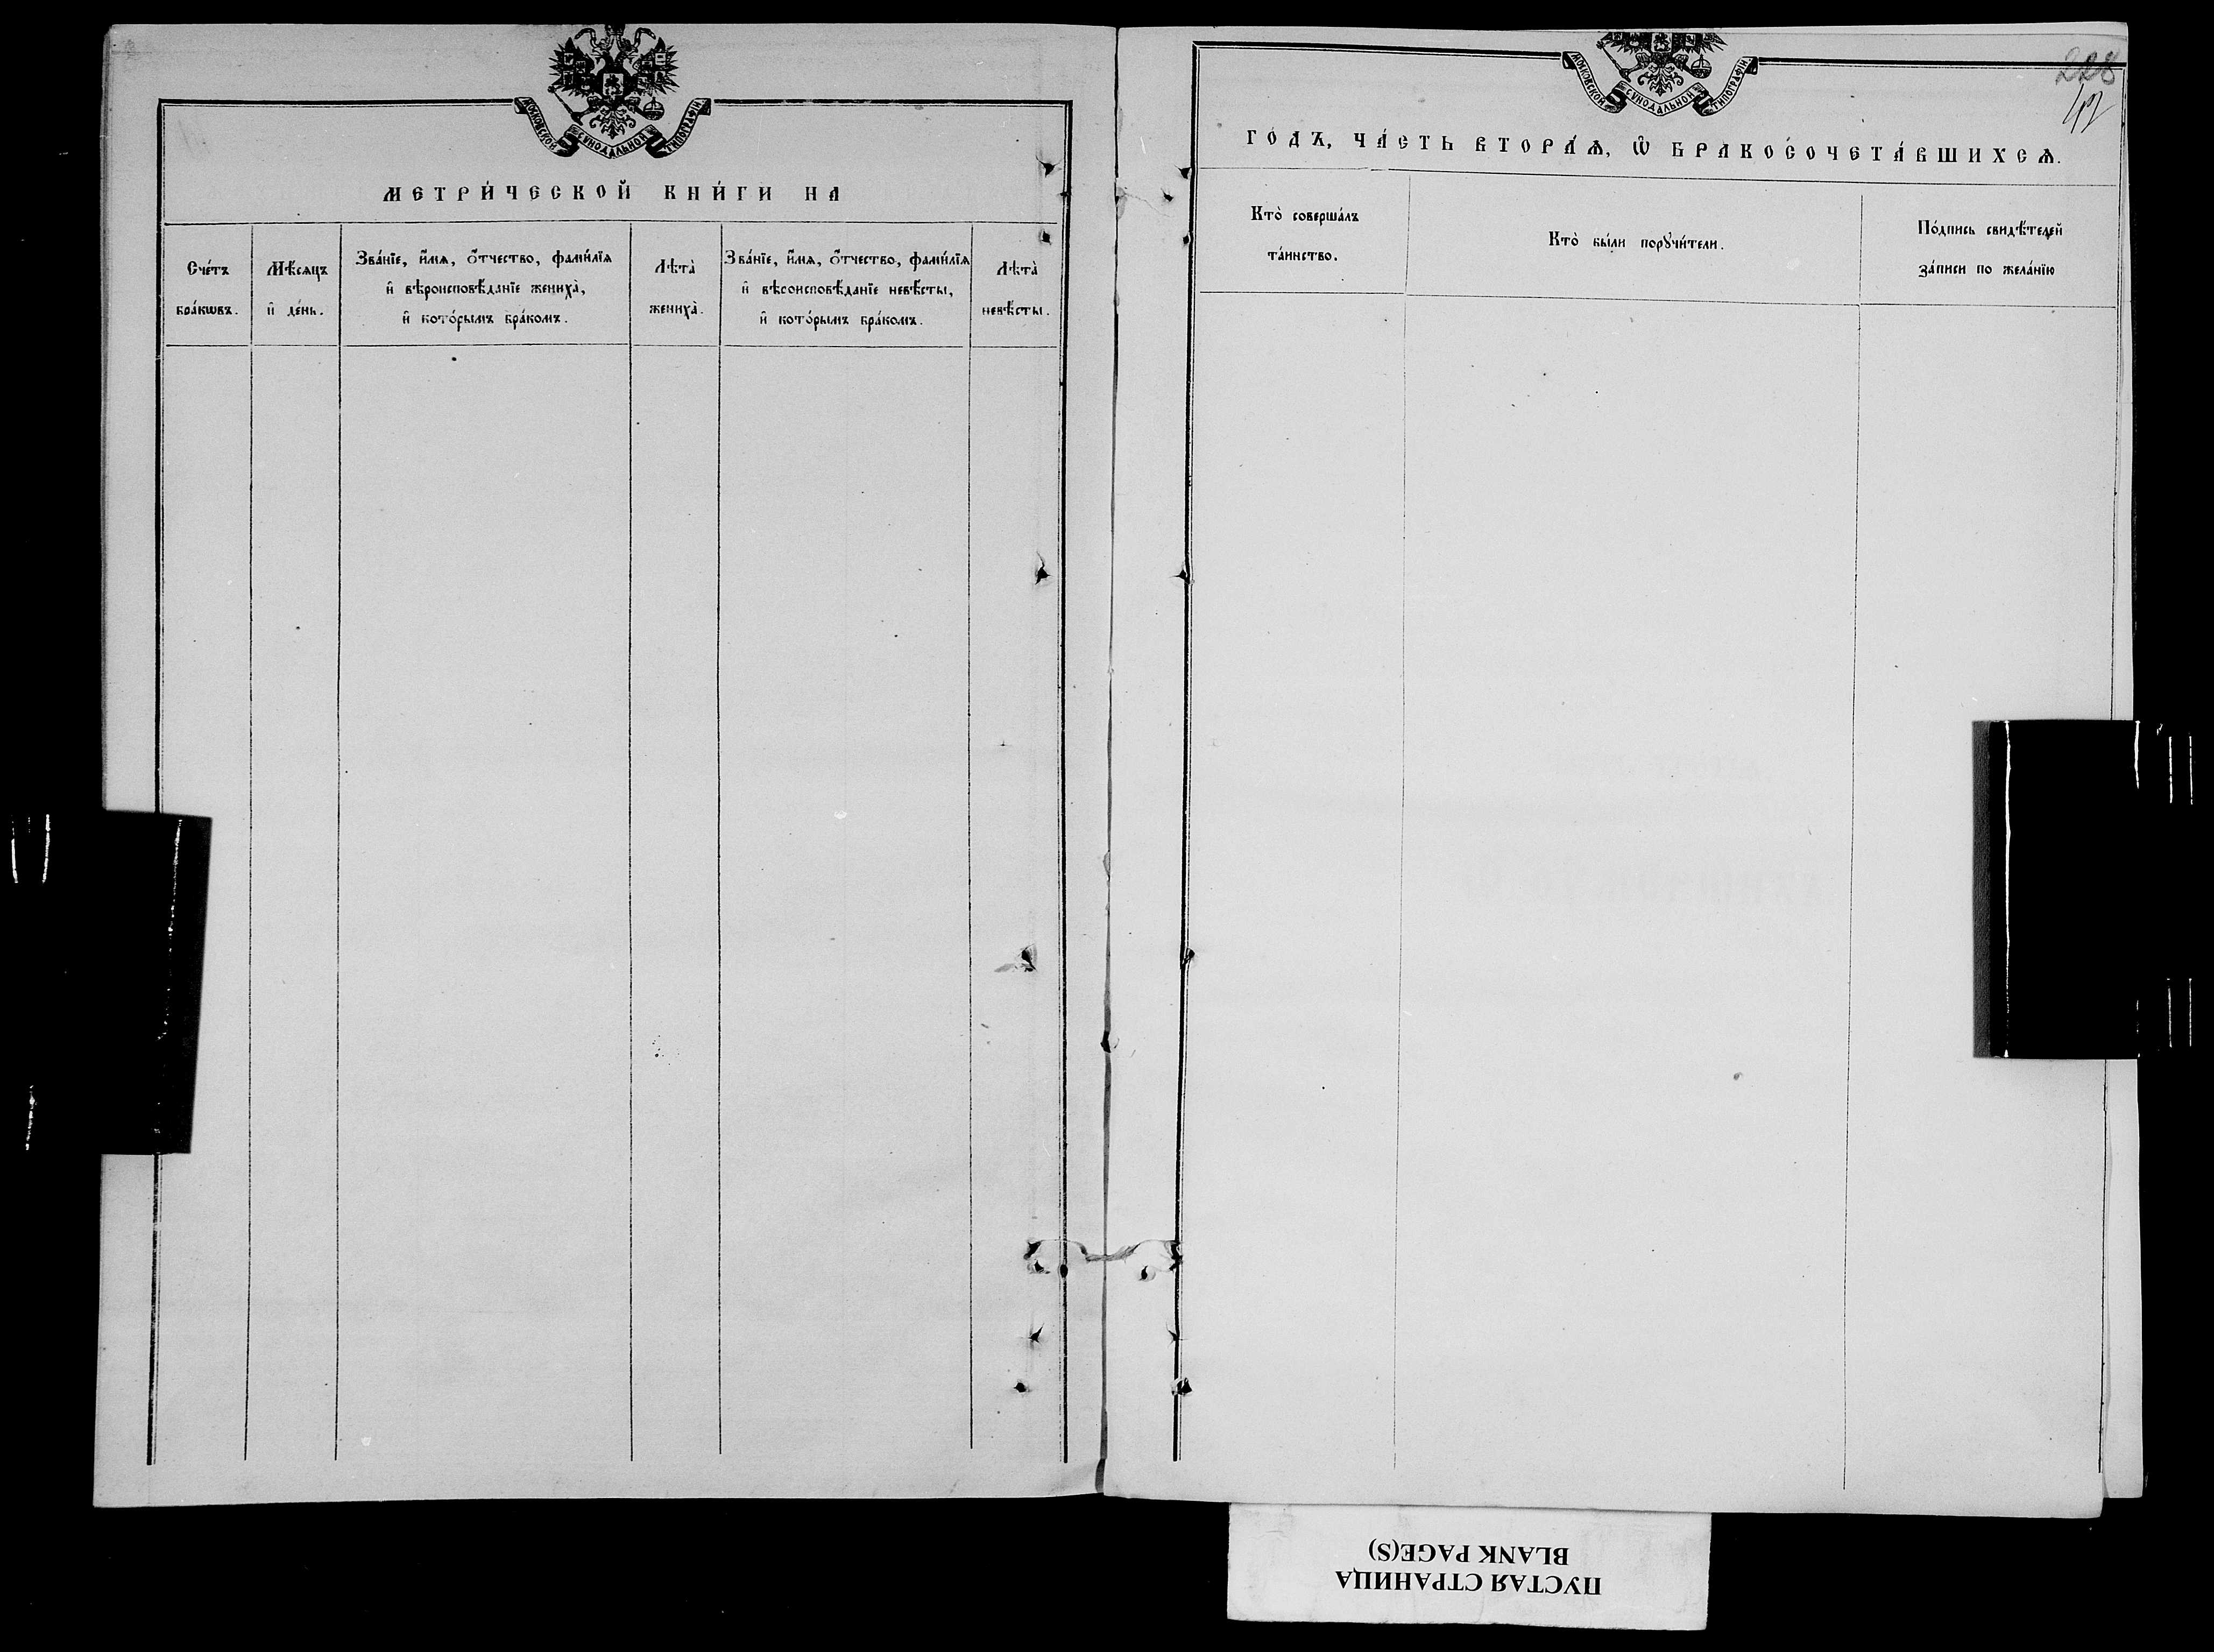 МОСКОВСКОЙ СѴНОДАЛЬНОЙ ТИПОГРАФІИ
МЕТРИ́ЧЕСКОЙ КНИ́ГИ НА
Сче́тъ
бра́кѡвъ.
Мѣ́сяцъ
и҆ де́нь.
Зва́нїе, и҆́мѧ, ѻ҆́тчество, фами́лїѧ
и҆ вѣроисповѣ́данїе жениха̀,
и҆ кото́рымъ бра́комъ.
Лѣта̀
жениха̀.
Зва́нїе, и҆́мѧ, ѻ҆́тчество, фами́лїѧ
и҆ вѣроисповѣ́данїе невѣ́сты,
и҆ кото́рымъ бра́комъ.
Лѣта̀
невѣ́сты.
МОСКОВСКОЙ СѴНОДАЛЬНОЙ ТИПОГРАФІИ
228
ГО́ДЪ, ЧА́СТЬ ВТОРА́Ѧ, Ѡ҆ БРАКОСОЧЕТА́ВШИХСѦ.
Кто̀ соверша́лъ
та́инство.
Кто̀ бы́ли порꙋчи́тели.
По́дпись свидѣ́телей
за́писи по жела́нїю
ПУСТАЯ СТРАНИЦА
BLANK PAGE(S)